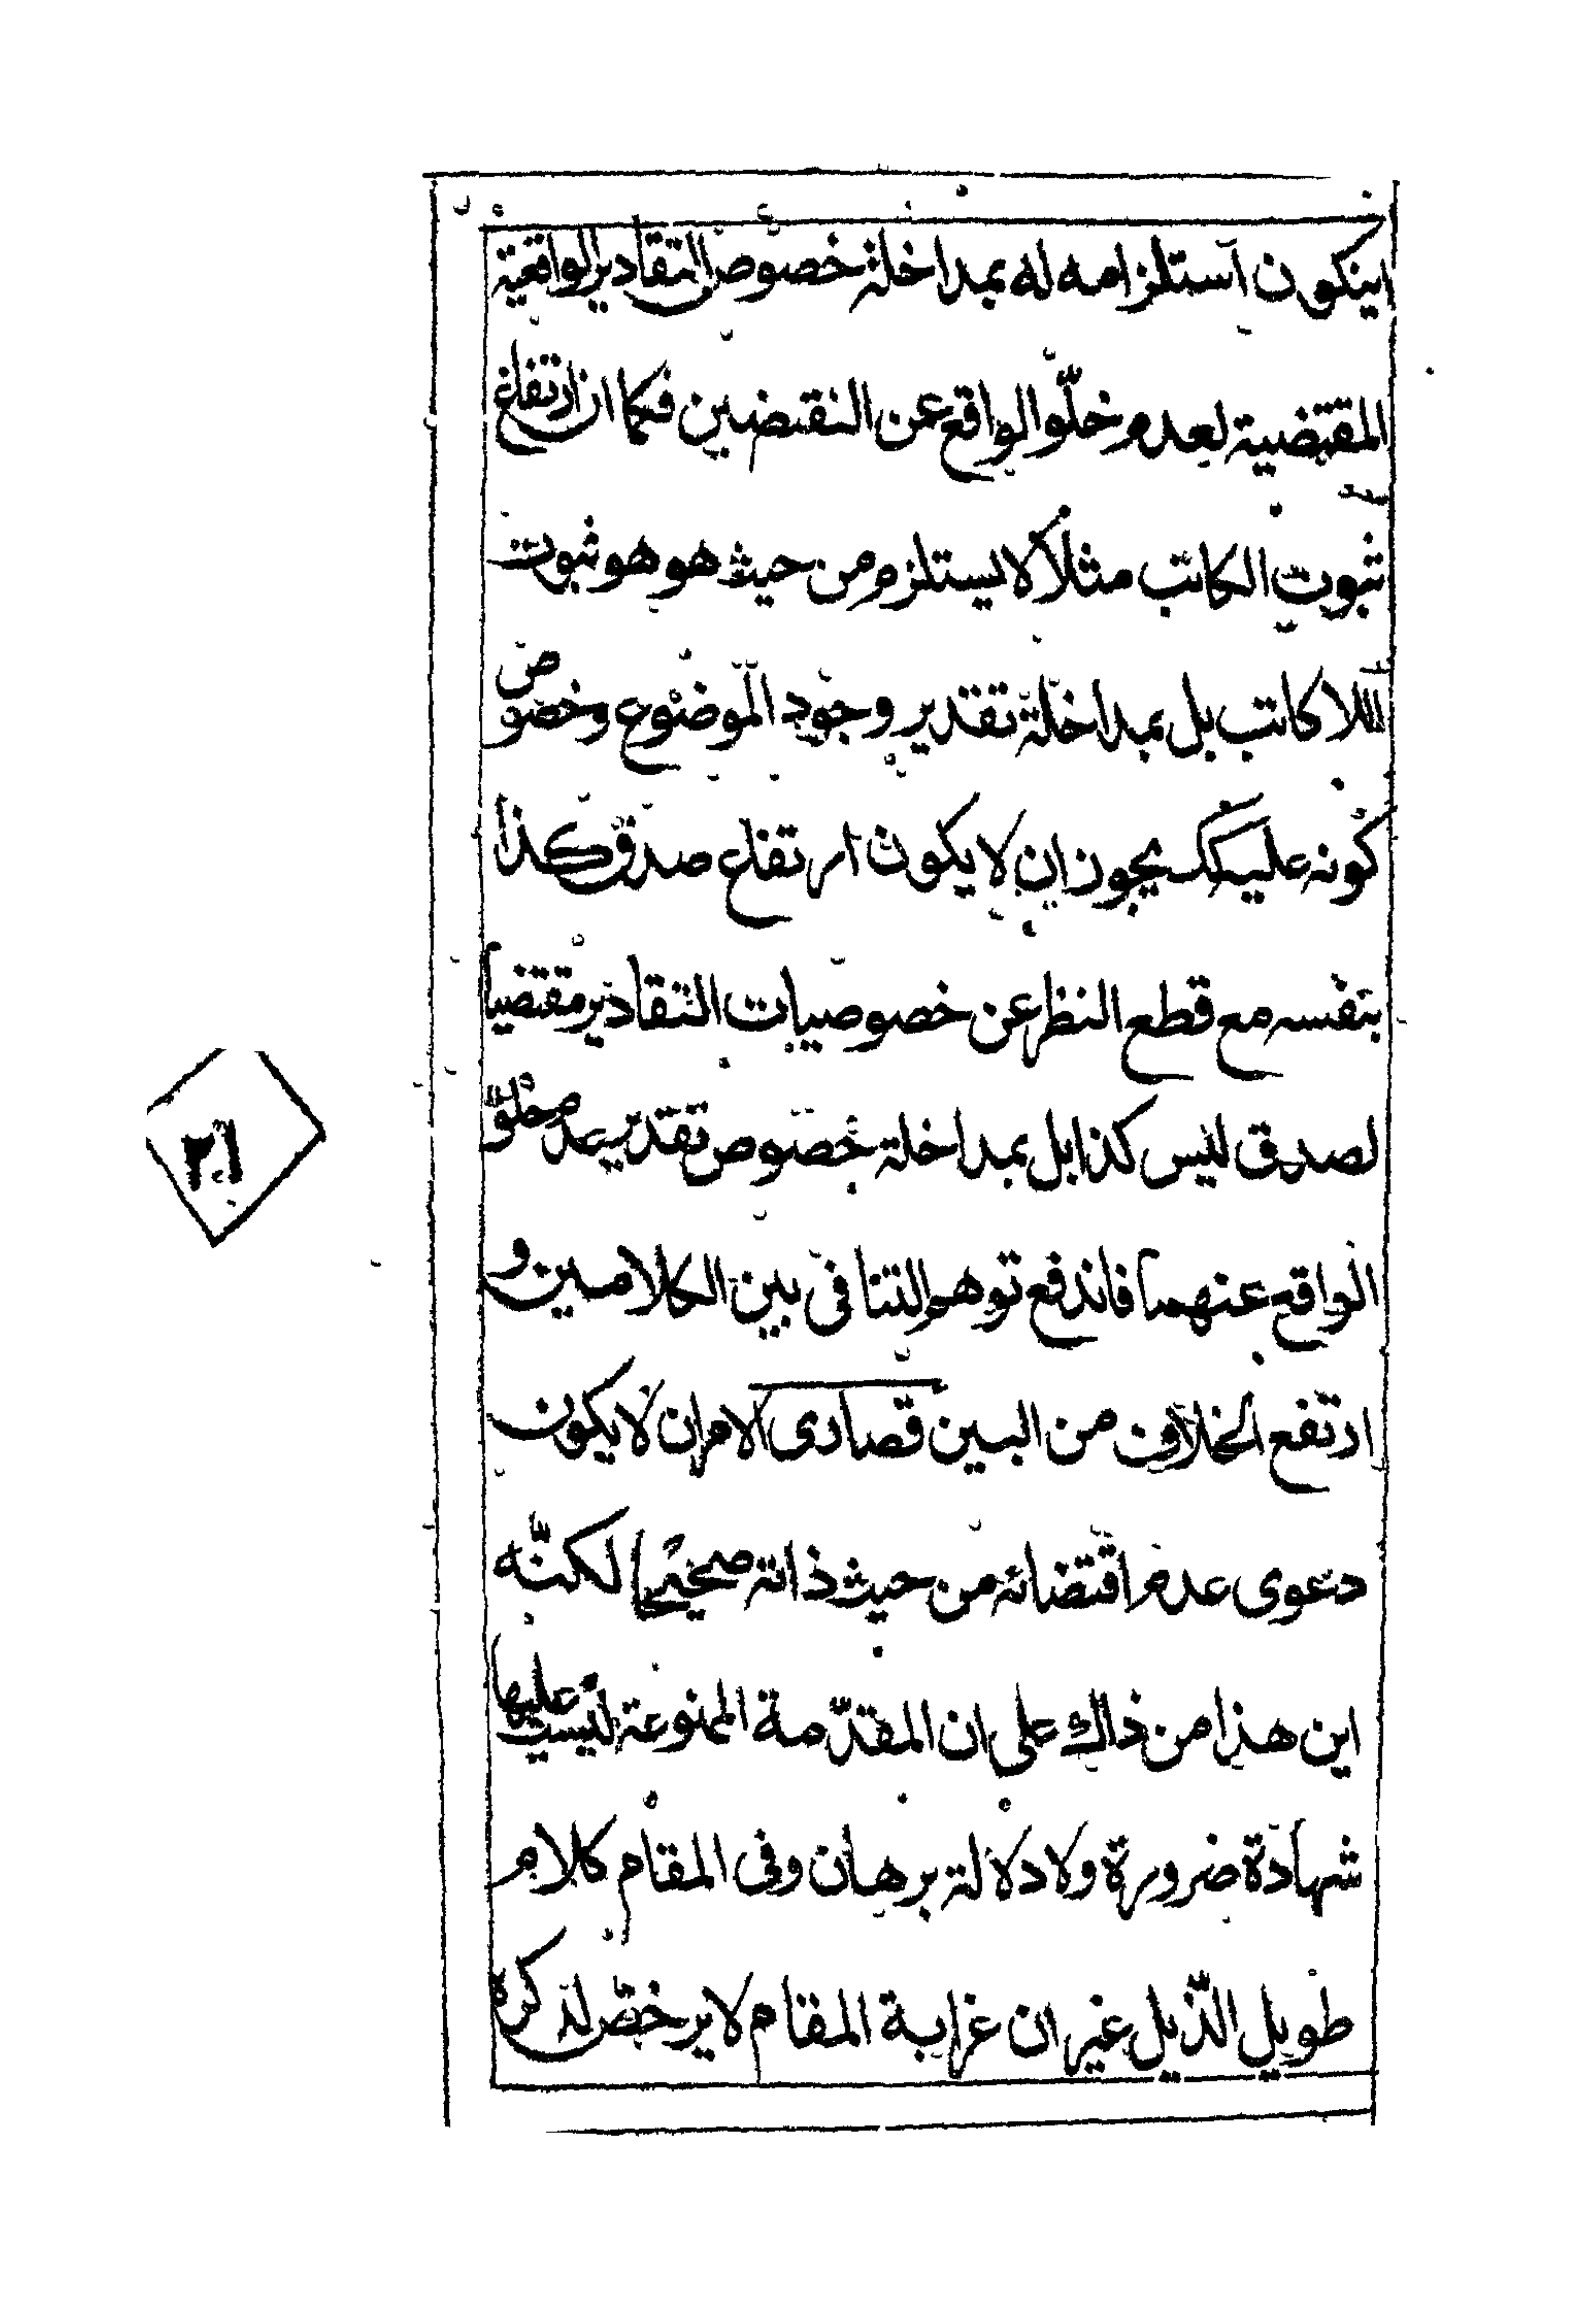 اينكون استلزامه له بمداخلة خصوص التقادير الواقعية
المقتضية لعدم خلّو الواقع عن النقيضين فكما ان ارتفاع
ثبوت الكاتب مثلا لا يستلزم من حيث هو هو ثبوت
اللاكاتب بل بمداخلة تقدير وجود الموضوع وخصوص
كونه عليه كك يجوز ان لا يكون ارتفاع صدق كذا
بنفسه مع قطع النظر عن خصوصيات التقادير مقتضيا
لصدق ليس كذا بل بمداخلة خصوص تقدير عدم خلوّ
الواقع عنهما فاندفع توهم التنافى بين الكلامين و
ارتفع الخلاف من البين قصارى الامر ان لا يكون
دعوى عدم اقتضائه من حيث ذاته صحيحا لكنّه
اين هذا من ذاك على ان المقدّمة الممنوعة ليست عليها
شهادة ضرورة ولا دلالة برهان وفى المقام كلام
طويل الذّيل غير ان غرابة المقام لا يرخص لذكره